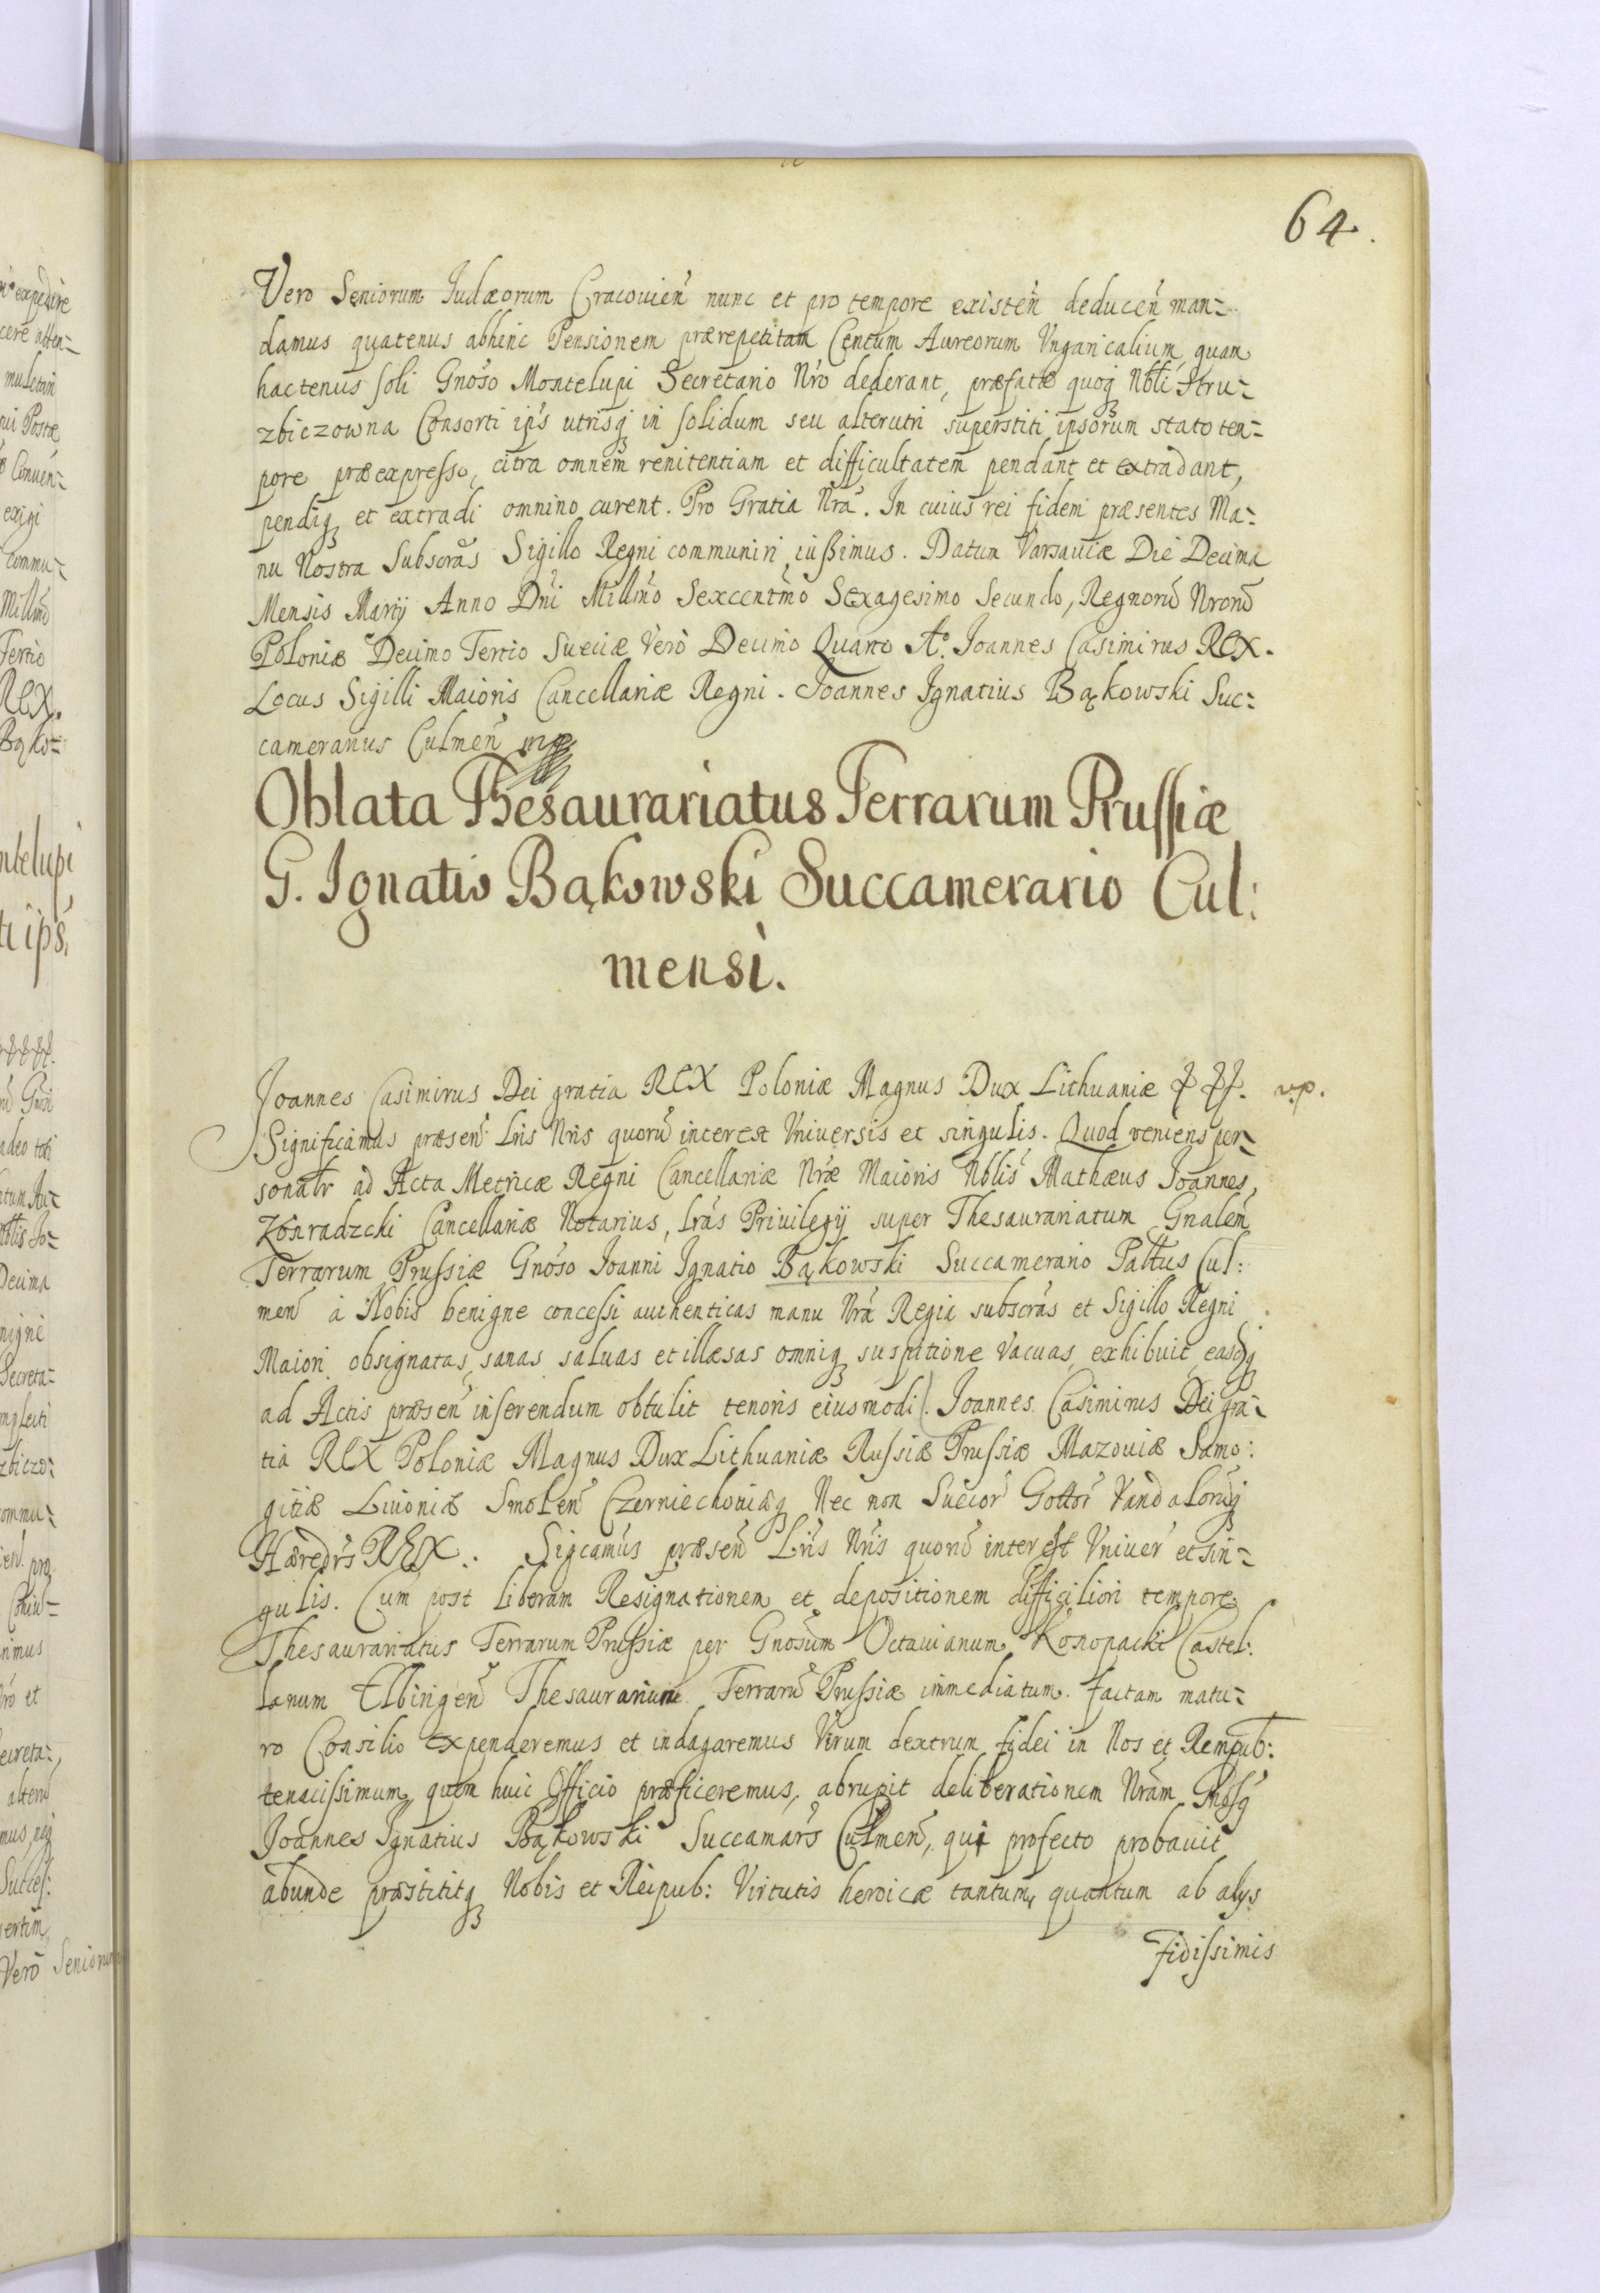 64.
Vero Seniorum Judæorum Cracouień nunc et pro tempore existeń deduceń man-
damus quatenus abhinc Pensionem prærepetitam Centum Aureorum Vngaricalium, quam
hactenus soli Gnoso Montelupi Secretario Nro dederant, præfatæ quoq Nbli Stru-
zbiczowna Consorti ips utrisq in solidum seu alterutri superstiti ipsorum stato tem-
pore præexpresso, citra omnem renitentiam et difficultatem pendant et extradant,
pendiq et extradi omnino curent. Pro Gratia Nra. In cuius rei fidem præsentes Ma-
nu Nostra Subscras Sigillo Regni communiri iussimus. Datum Varsaviæ Die Decima
Mensis Martij Anno Dni Millmo Sexcentmo Sexagesimo Secundo, Regnorū Nrorū
Poloniæ Decimo Tertio Sueciæ Vero Decimo Quarto Ao. Joannes Casimirus REX.
Locus Sigilli Maioris Cancellariæ Regni. Joannes Ignatius Bąkowski Suc-
camerarius Culmeń mp
Oblata Thesaurariatus Terrarum Prussiæ
G. Ignatio Bąkowski Succamerario Cul:
mensi.
Joannes Casimirus Dei gratia REX Poloniæ Magnus Dux Lithuaniæ &&&. v.p.
Significamus præseń Lris Nris quorū interest Vniversis et singulis. Quod veniens per-
sonalr ad Acta Metricæ Regni Cancellariæ Nræ Maioris Nblis Mathæus Joannes
Konradzcki Cancellariæ Notarius, lras Privilegij super Thesaurariatum Gnalem
Terrarum Prussiæ Gnoso Joanni Ignatio Bąkowski Succamerario Palttus Cul:
meń à Nobis benigne concessi authenticas manu Nra Regia subscras et Sigillo Regni
Maiori obsignatas, sanas saluas et illæsas omniq suspitione vacuas, exhibuit, easdq
ad Actis præseń inserendum obtulit tenoris eiusmodi. Joannes Casimirus Dei gra-
tia REX Poloniæ Magnus Dux Lithuaniæ Russiæ Prussiæ Mazouiæ Samo:
gitiæ Liuoniæ Smoleń Czerniechouiæq Nec non Suecor Gottor Vandalorūq
Hæredrs REX. Sigcamus præseń Lris Nris quorū interest Vniuer et sin-
gulis. Cum post liberam Resignationem et depositionem difficiliori tempore
Thesaurariatus Terrarum Prussiæ per Gnosum Octauianum Konopacki Castel:
lanum Elbingeń Thesaurarium Terrarū Prussiæ immediatum factam matu-
ro Consilio expenderemus et indagaremus Virum dextrum fidei in Nos et Rempub:
tenacissimum, quem huic Officio præficeremus, abrupit deliberationem Nram Gnosq
Joannes Ignatius Bąkowski Succamars Culmeń, qui profecto probauit
abunde præstititq Nobis et Reipub: Virtutis heroicæ tantum, quantum ab alys
fidissimis